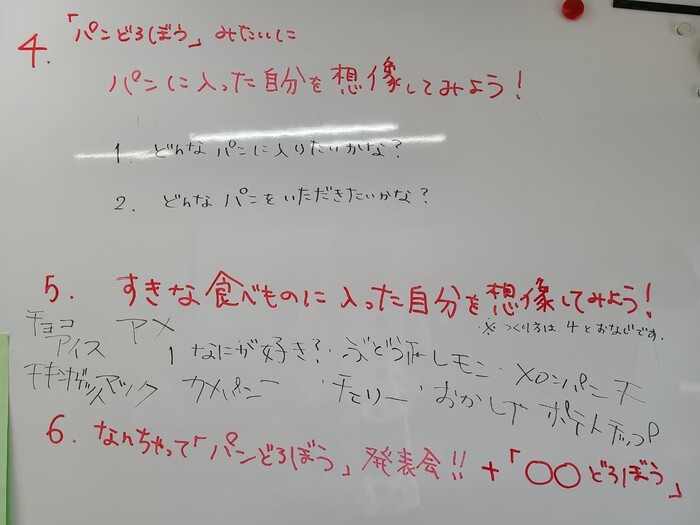 4. 「パンどろぼう」みたいに
パンに入った自分を想像してみよう!
1. どんなパンに入りたいかな?
2. どんなパンをいただきたいかな?
5. すきな食べものに入った自分を想像してみよう!
※つくり方は、4とおなじです.
チョコ アメ
アイス 1 なにが好き? ぶどう レモン メロンパン
カメパン チェリー おかし ポテトチップ
6. なんちゃって「パンどろぼう」発表会!! +「〇〇どろぼう」